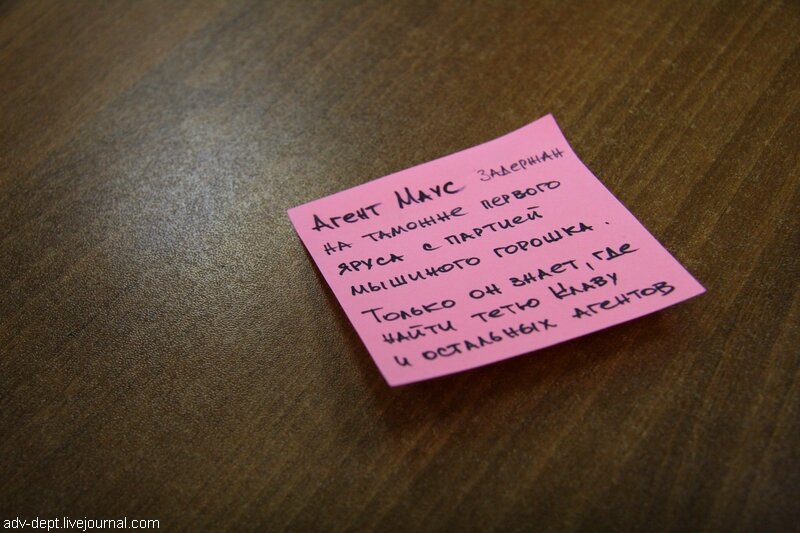 Агент Маус задержан
на таможне первого
яруса с партией
мышиного горошка.
Только он знает, где
найти тетю Клаву
и остальных агентов
adv-dept.livejournal.com